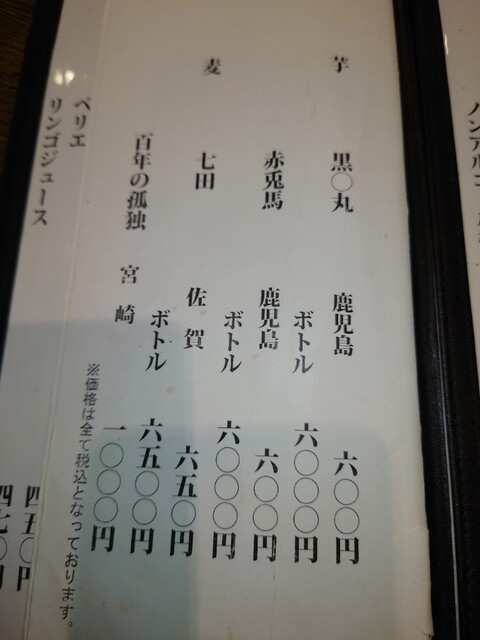 ノンアルコ
芋 黒〇丸 鹿児島 六〇〇円
ボトル 六〇〇〇円
赤兎馬 鹿児島 六〇〇円
ボトル 六〇〇〇円
麦 七田 佐賀 六五〇円
ボトル 六五〇〇円
百年の孤独 宮崎 一〇〇〇円
※価格は全て税込となっております。
ペリエ 四五〇円
リンゴジュース 四七〇円